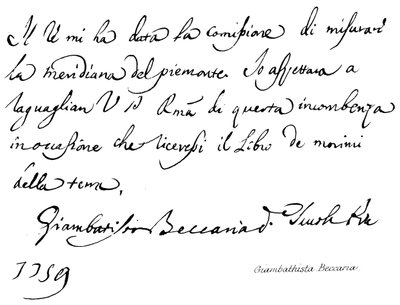 Il Re mi ha data la comissione di misurare
la meridiana del piemonte. Io aspettava a
raguagliar V P Rma di questa incombenza
in occasione che ricevessi il Libro de
della terra,
Giambatista Beccaria d.
1759
Giambathista Beccaria